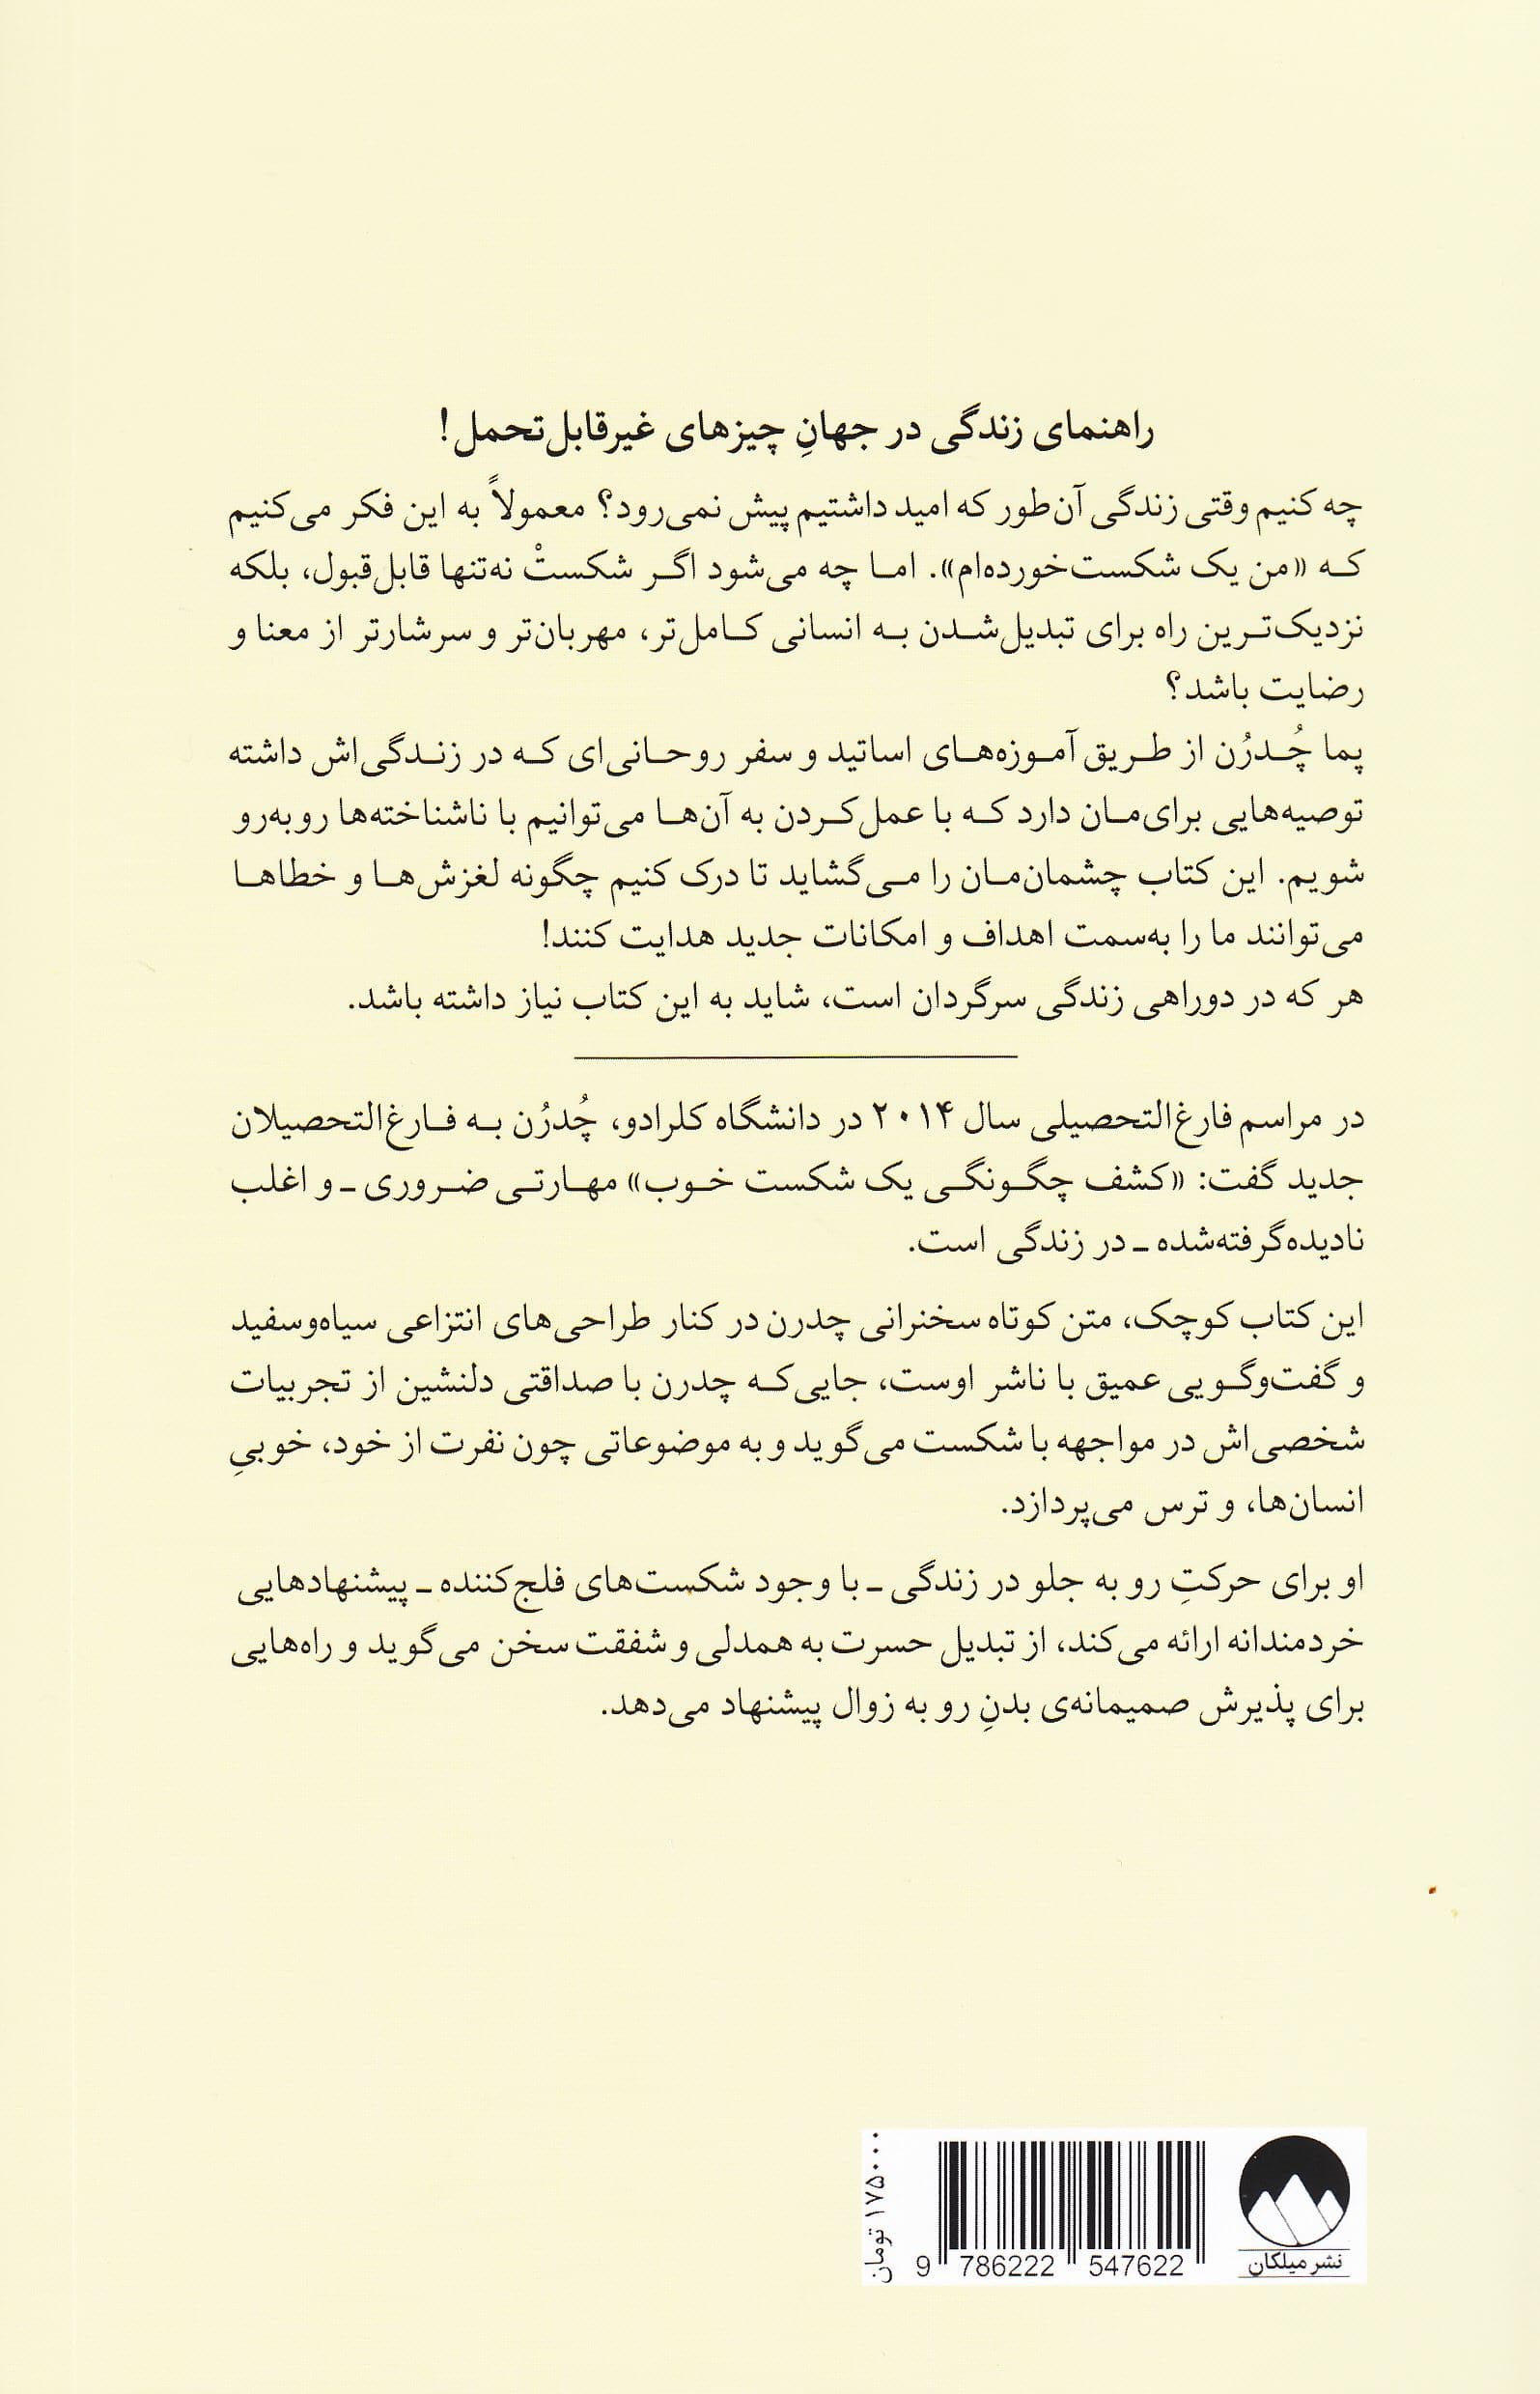 راهنمای زندگی در جهانِ چیزهای غیرقابل‌تحمل!
چه کنیم وقتی زندگی آن‌طور که امید داشتیم پیش نمی‌رود؟ معمولاً به این فکر می‌کنیم
که «من یک شکست‌خورده‌ام». اما چه می‌شود اگر شکستْ نه‌تنها قابل‌قبول، بلکه
نزدیک‌ترین راه برای تبدیل‌شدن به انسانی کامل‌تر، مهربان‌تر و سرشارتر از معنا و
رضایت باشد؟
پما چُدرُن از طریق آموزه‌های اساتید و سفر روحانی‌ای که در زندگی‌اش داشته
توصیه‌هایی برای‌مان دارد که با عمل‌کردن به آن‌ها می‌توانیم با ناشناخته‌ها روبه‌رو
شویم. این کتاب چشمان‌مان را می‌گشاید تا درک کنیم چگونه لغزش‌ها و خطاها
می‌توانند ما را به‌سمت اهداف و امکانات جدید هدایت کنند!
هر که در دوراهی زندگی سرگردان است، شاید به این کتاب نیاز داشته باشد.
در مراسم فارغ‌التحصیلی سال ۲۰۱۴ در دانشگاه کلرادو، چُدرُن به فارغ‌التحصیلان
جدید گفت: «کشف چگونگی یک شکست خوب» مهارتی ضروری ـ و اغلب
نادیده‌گرفته‌شده ـ در زندگی است.
این کتاب کوچک، متن کوتاه سخنرانی چدرن در کنار طراحی‌های انتزاعی سیاه‌وسفید
و گفت‌وگویی عمیق با ناشر اوست، جایی‌که چدرن با صداقتی دلنشین از تجربیات
شخصی‌اش در مواجهه با شکست می‌گوید و به موضوعاتی چون نفرت از خود، خوبیِ
انسان‌ها، و ترس می‌پردازد.
او برای حرکتِ رو به جلو در زندگی ـ با وجود شکست‌های فلج‌کننده ـ پیشنهادهایی
خردمندانه ارائه می‌کند، از تبدیل حسرت به همدلی و شفقت سخن می‌گوید و راه‌هایی
برای پذیرش صمیمانه‌ی بدنِ رو به زوال پیشنهاد می‌دهد.
نشر میلکان
9 786222 547622
۱۷۵۰۰۰ تومان